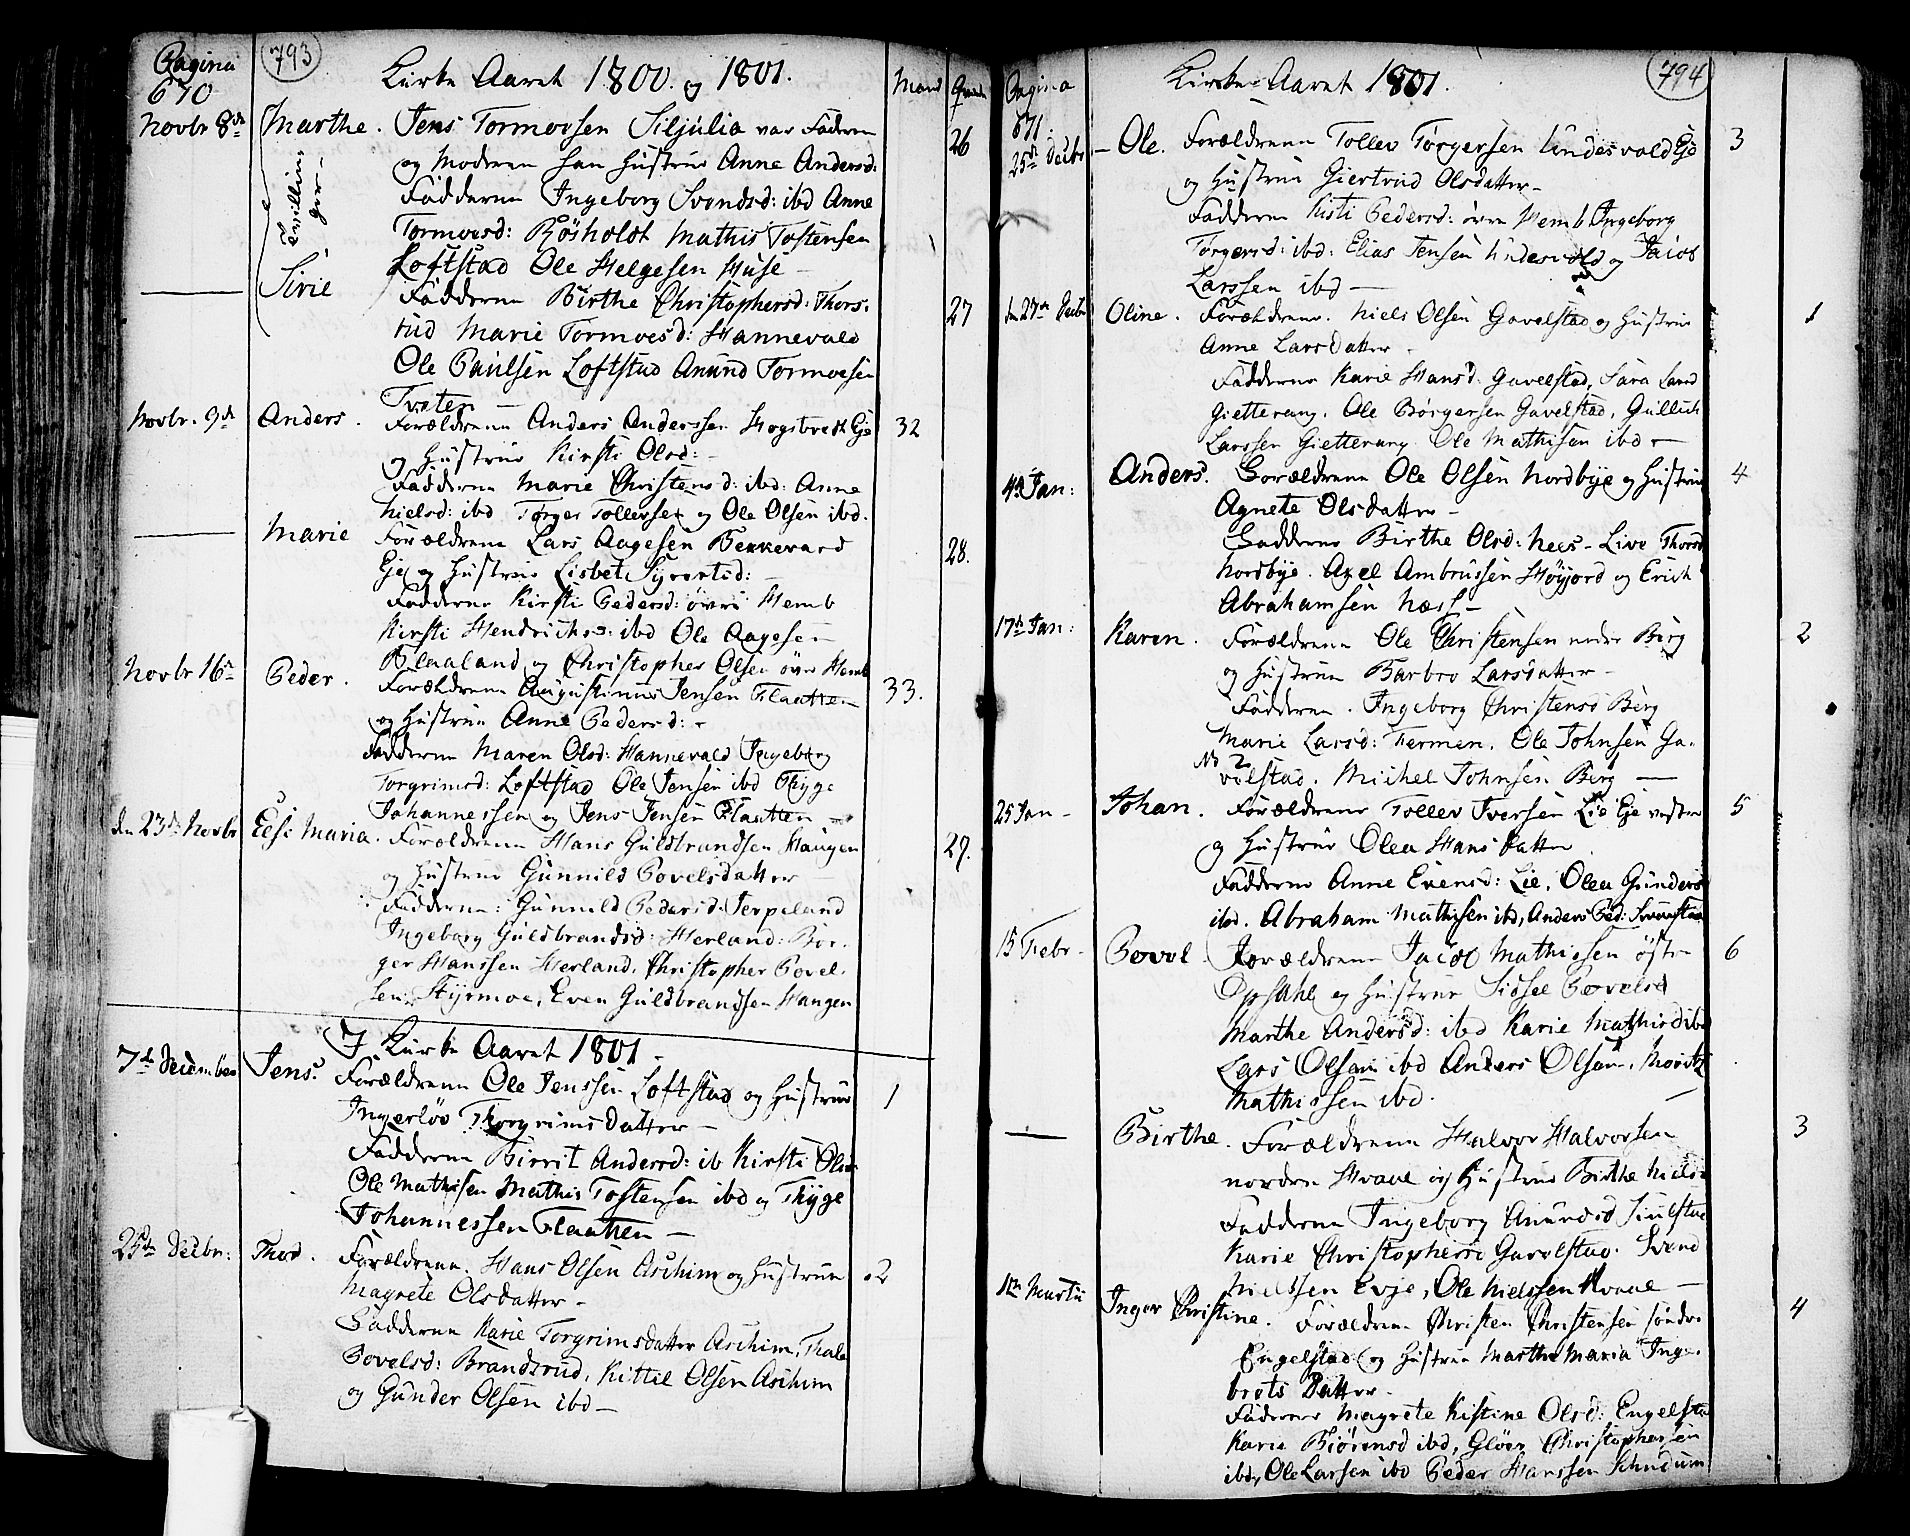 Pagina 670
793
Kirke Aaret 1800. og 1801.
Mand
Novbr 8de
Marthe.
Tvillinger
Jens Tormoesen Siljulia var Faderen
og Moderen han Hustrue Anne Andersd:
Fadderne Ingeborg Svendsd: ibd Anne
Tormoesd: Rösholdt Mathis Tostensen
Loftstad Ole Helgesen Huse —
26
Sirie
Fadderne Birthe Christophersd: Thors-
rud Marie Tormoesd: Hannevald
Ole Paulsen Loftstad Anund Tormoesen
Tveten —
27
Novbr. 9de
Anders.
Forældrene Anders Anderssen Hogstvedt Eje
og Hustrue Kirsti Olsd: -
Fadderne Marie Christensd: ibd: Anne
Nielsd: ibd Torger Tollevsen og Ole Olsen ibd.
32
Marie
Forældrene Lars Aagesen Bekkevard
Eje og Hustrue Lisbet Syvertsd: -
Fadderne Kirsti Pedersd: övre Hemb
Kirsti Hendrichsd: ibd Ole Aagesen
Blaaland og Christopher Olsen övre Hemb
28.
Novbr 16de
Peder.
Forældrene Augustinus Jensen Flaatten
og Hustrue Anne Pedersd: -
Fadderne Maren Olsd: Hannevald Ingeborg
Torgrimsd: Loftstad Ole Jensen ibd Thyge
Johannessen og Jens Jensen Flaatten —
33.
den 23de Novbr
Else Maria.
Forældrene Hans Guldbrandsen Haugen
og Hustrue Gunnild Povelsdatter —
Fadderne: Gunnild Pedersd: Jerpeland
Ingeborg Guldbrandsd: Herland: Bör-
ger Hanssen Herland, Christopher Povel-
sen: Styrmoe, Even Guldbrandsen Haugen
29.
I Kirke Aaret 1801 -
7de December
Jens.
Forældrene Ole Jenssen Loftstad og Hustrue
Ingerlöv Thorgrimsdatter —
Fadderne Birrit Andersd: ib Kirsti Olsd:
Ole Mathisen Mathis Tostensen ibd og Thyge
Johannessen Flaatten —
1
25de Decbr:
Thor.
Forældrene. Hans Olsen Aschim og Hustrue
Magrete Olsdatter -
Fadderne Karie Torgrimsdatter Aschim, Thale
Povelsd: Brandsrud, Kittil Olsen Aschim
og Gunder Olsen ibd —
2
Pagina 671.
Kirke Aaret 1801.
794
25de Decbr
Ole.
Forældrene Tollev Törgersen Undesvold Eje
og Hustrue Giertrud Olsdatter -
Fadderne Kisti Pedersd: övre Hemb Ingeborg
Törgersd: ibd: Elias Jensen Undesvold og Jacob
Larssen ibd —
3
den 27de Decbr
Oline.
Forældrene. Niels Olsen Gavelstad og Hustrue
Anne Larsdatter -
Fadderne Karie Hansd: Gavelstad, Sara Larsd
Gietterang. Ole Börgersen Gavelstad, Gullich
Larssen Gietterang. Ole Mathisen ibd —
1
4de Jan:
Anders.
Forældrene Ole Olsen Nordbye og Hustrue
Agnete Olsdatter -
Fadderne Birthe Olsd: Nees - Live Thorsd
Nordbye. Axel Ambrussen Höyjord og Erich
Abrahamsen Næss —
4
17de Jan:
Karen.
Forældrene Ole Christensen nedre Berg
og Hustrue Barbro Larsdatter -
Fadderne. Ingeborg Christensd Berg
Marie Larsd: Fermen. Ole Johnsen Ga-
velstad. Michel Johnsen Berg —
2
No 2
25 Jan -
Johan.
Forældrene Tollev Iversen Lie Eje vestre
og Hustrue Olea Hansdatter.
Fadderne Anne Evensd: Lie, Olea Gundersd
ibd. Abraham Mathisen ibd, Anders Ped:
5
15 Febr -
Povel
Forældrene Jacob Mathiesen östre
Opsahl og Hustrue Sidsel Povelsd
Marthe Andersd: ibd Karie Mathisd ibd
Lars Olsen ibd Anders Olsen, Moritz
Mathissen ibd.
6
Birthe.
Forældrene Halvor Halvorsen
norden Hvaal og Hustrue Birthe Nielsd
Fadderne Ingeborg Anundsd Fuulstad
Karie Christophersd Gavelstad. Svend
Nielssen Evje, Ole Nielssen Hvaal —
3
1ste Martii
Inger Christine.
Forældrene Christen Christensen söndre
Engelstad og Hustrue Marthe Maria Inge-
brets Datter -
Fadderne Magrete Kistine Olsd: Engelstad
Karie Biörensd ibd, Glöer Christophersen
ibd, Ole Larsen ibd Peder Hanssen
4